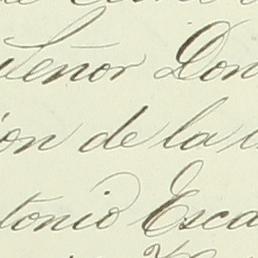 Señor Don
ión de la
tonio Esca